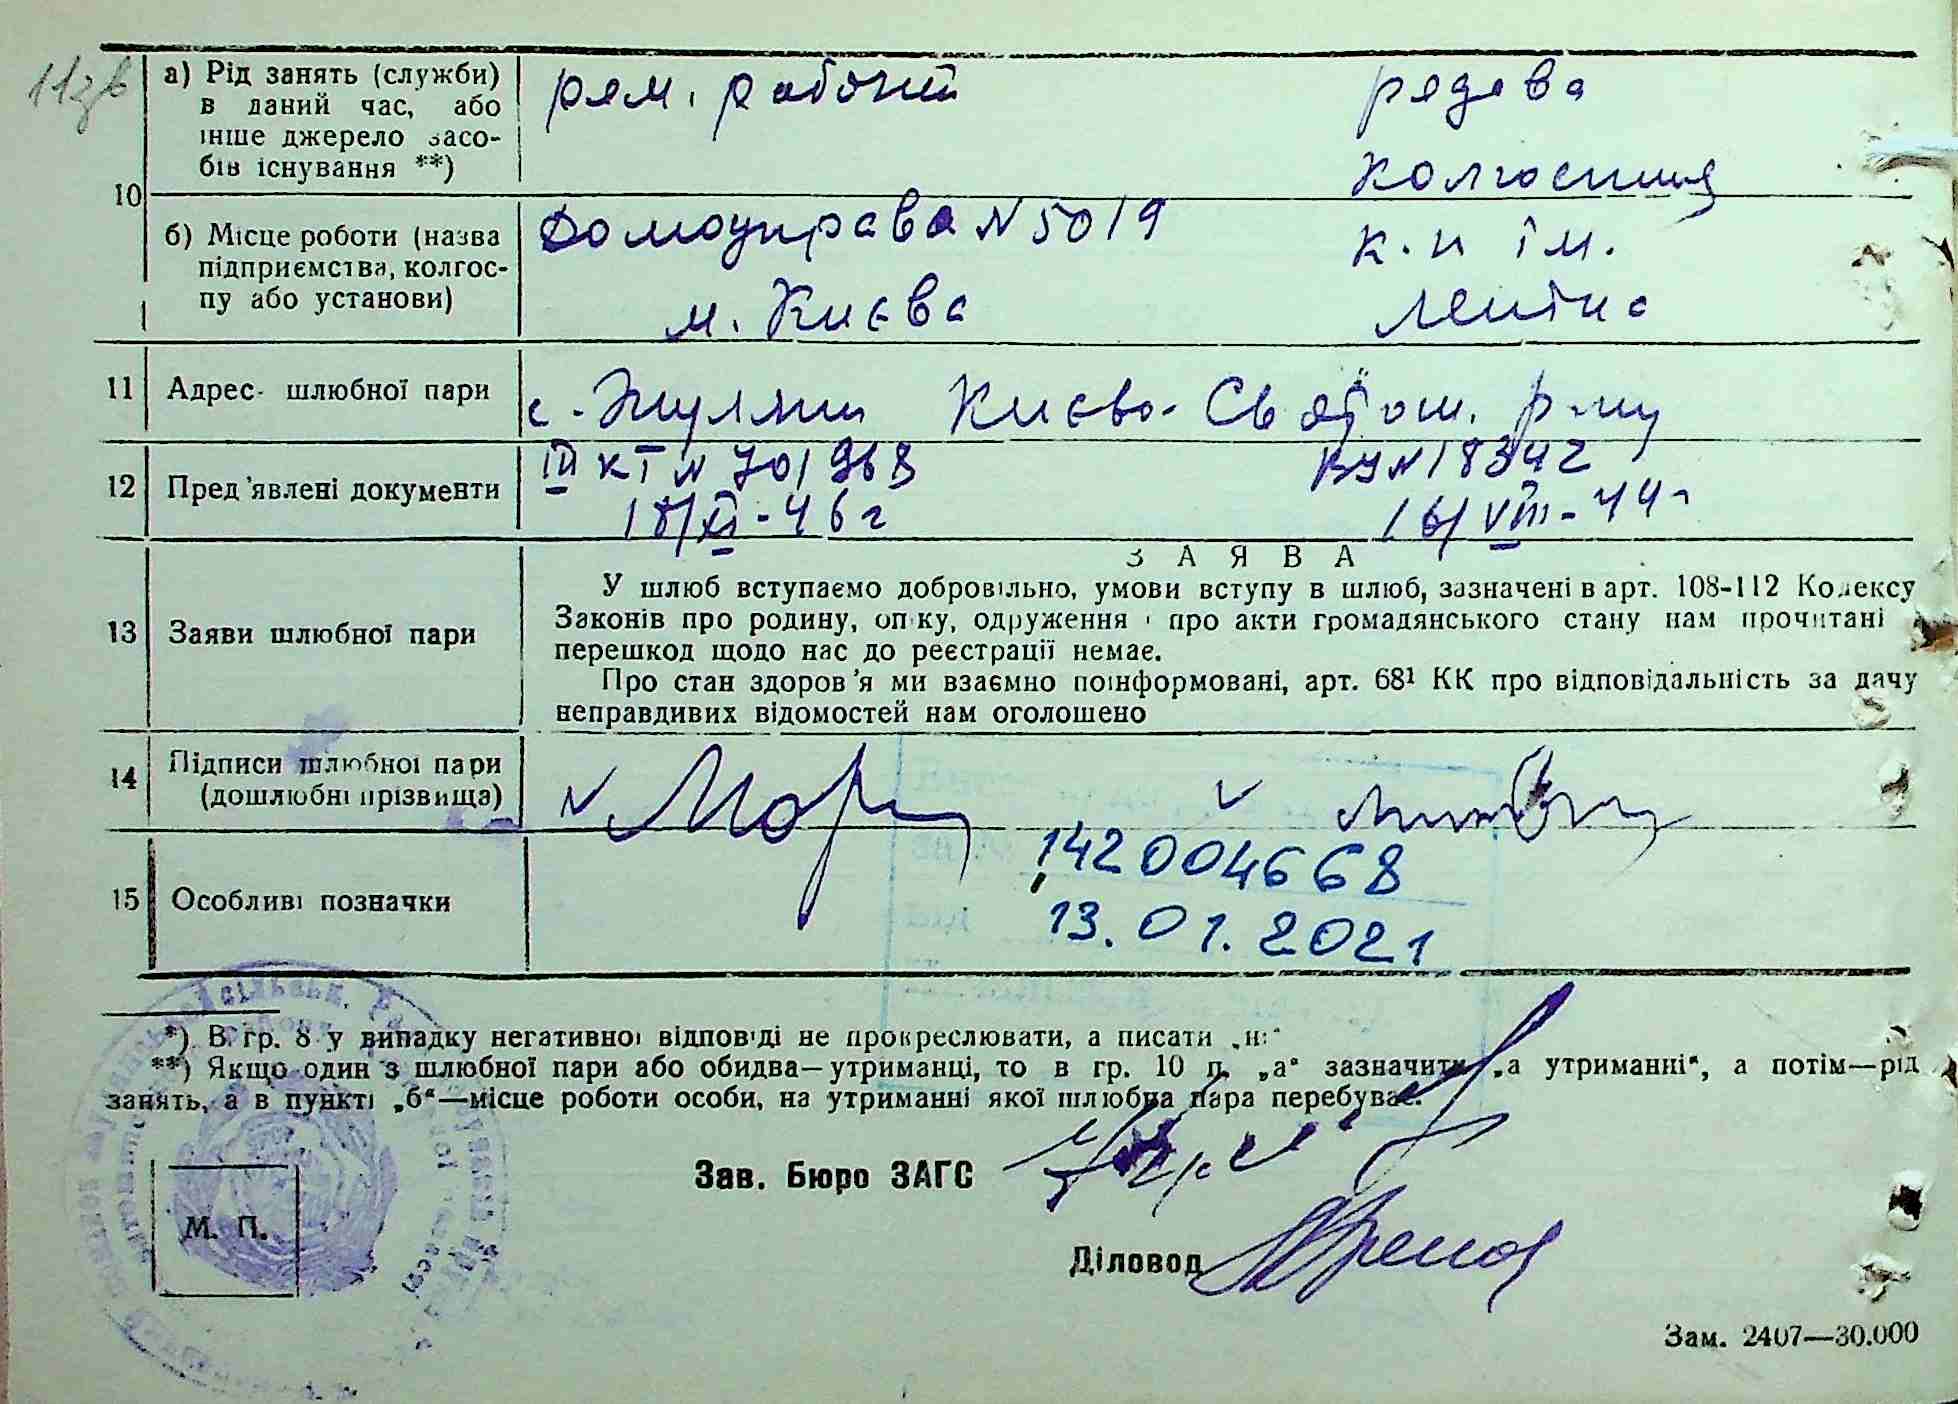 а) Рід занять (служби)
в даний час, або
інше джерело засо-
бів існування **)
рем. рабочий
рядова
колгоспниця
10
б) Місце роботи (назва
підприємства, колгос-
пу або установи)
Домоуправа N 5019
м. Києва
к-п ім.
Леніна
11 Адрес шлюбної пари
с. Жуляни Києво-Святош. р-ну
12 Пред'явлені документи
III КТ N 701968
18/XI-46 г
N 18342
16/VIII-44 г
13 Заяви шлюбної пари
ЗАЯВА
У шлюб вступаємо добровільно, умови вступу в шлюб, зазначені в арт. 108-112 Кодексу
Законів про родину, опіку, одруження і про акти громадянського стану нам прочитані
перешкод щодо нас до реєстрації немає.
Про стан здоров'я ми взаємно поінформовані, арт. 68¹ КК про відповідальність за дачу
неправдивих відомостей нам оголошено
14 Підписи шлюбної пари
(дошлюбні прізвища)
15 Особливі позначки
142004668
13.01.2021
*) В гр. 8 у випадку негативної відповіді не прокреслювати, а писати „ні“
**) Якщо один з шлюбної пари або обидва—утриманці, то в гр. 10 п. „а“ зазначити „а утриманні“, а потім—рід
занять, а в пункті „б“—місце роботи особи, на утриманні якої шлюбна пара перебуває.
Зав. Бюро ЗАГС
М. П.
Діловод
Зам. 2407—30.000